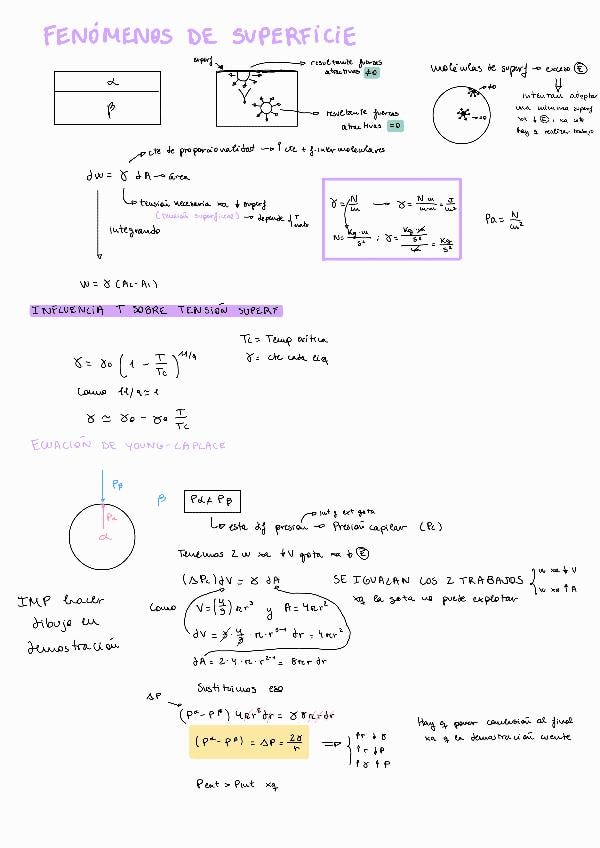 FENÓMENOS DE SUPERFICIE
superf
resultante fuerzas
atractivas ≠0
resultante fuerzas
atractivas =0
α
β
moléculas de superf → exceso E
≠0
=0
intentan adoptar
una mínima superf
xa ↓ E; xa esto
hay q realizar trabajo
cte de proporcionalidad → ↑ cte + f. intermoleculares
dw = γ dA → área
tensión necesaria xa ↓ superf
(tensión superficial) → depende T
integrando
W = γ (A₂-A₁)
γ = N/m → γ = N m/m·m = J/m²
N = kg·m/s² ; γ = kg·m/s²/m = kg/s²
Pa = N/m²
INFLUENCIA T SOBRE TENSIÓN SUPERF
Tc = Temp crítica
γ = γ₀ (1 - T/Tc)^11/9
γ = cte cada líq
Como 11/9 ≈ 1
γ ≃ γ₀ - γ₀ T/Tc
ECUACIÓN DE YOUNG-LAPLACE
Pβ
Pα
α
β
Pα ≠ Pβ
int y ext gota
esta dif presión → Presión capilar (Pc)
Tenemos 2 w xa ↓V gota xa ↓ E
(ΔPc)dV = γ dA
SE IGUALAN LOS 2 TRABAJOS
w xa ↓ V
w xa ↑ A
xq la gota no puede explotar
IMP hacer
dibujo en
demostración
Como V = (4/3) πr³ y A = 4πr²
dV = 3·4/3·π·r³⁻¹ dr = 4πr²
dA = 2·4·π·r²⁻¹ = 8πr dr
Sustituimos eso
ΔP
(Pα - Pβ) 4πr²dr = γ 8πrdr
(Pα - Pβ) = ΔP = 2γ/r ⇒
↑r ↓γ
↑r ↓P
↑γ ↑P
Hay q poner conclusión al final
xa q la demostración cuente
Pext > Pint xq